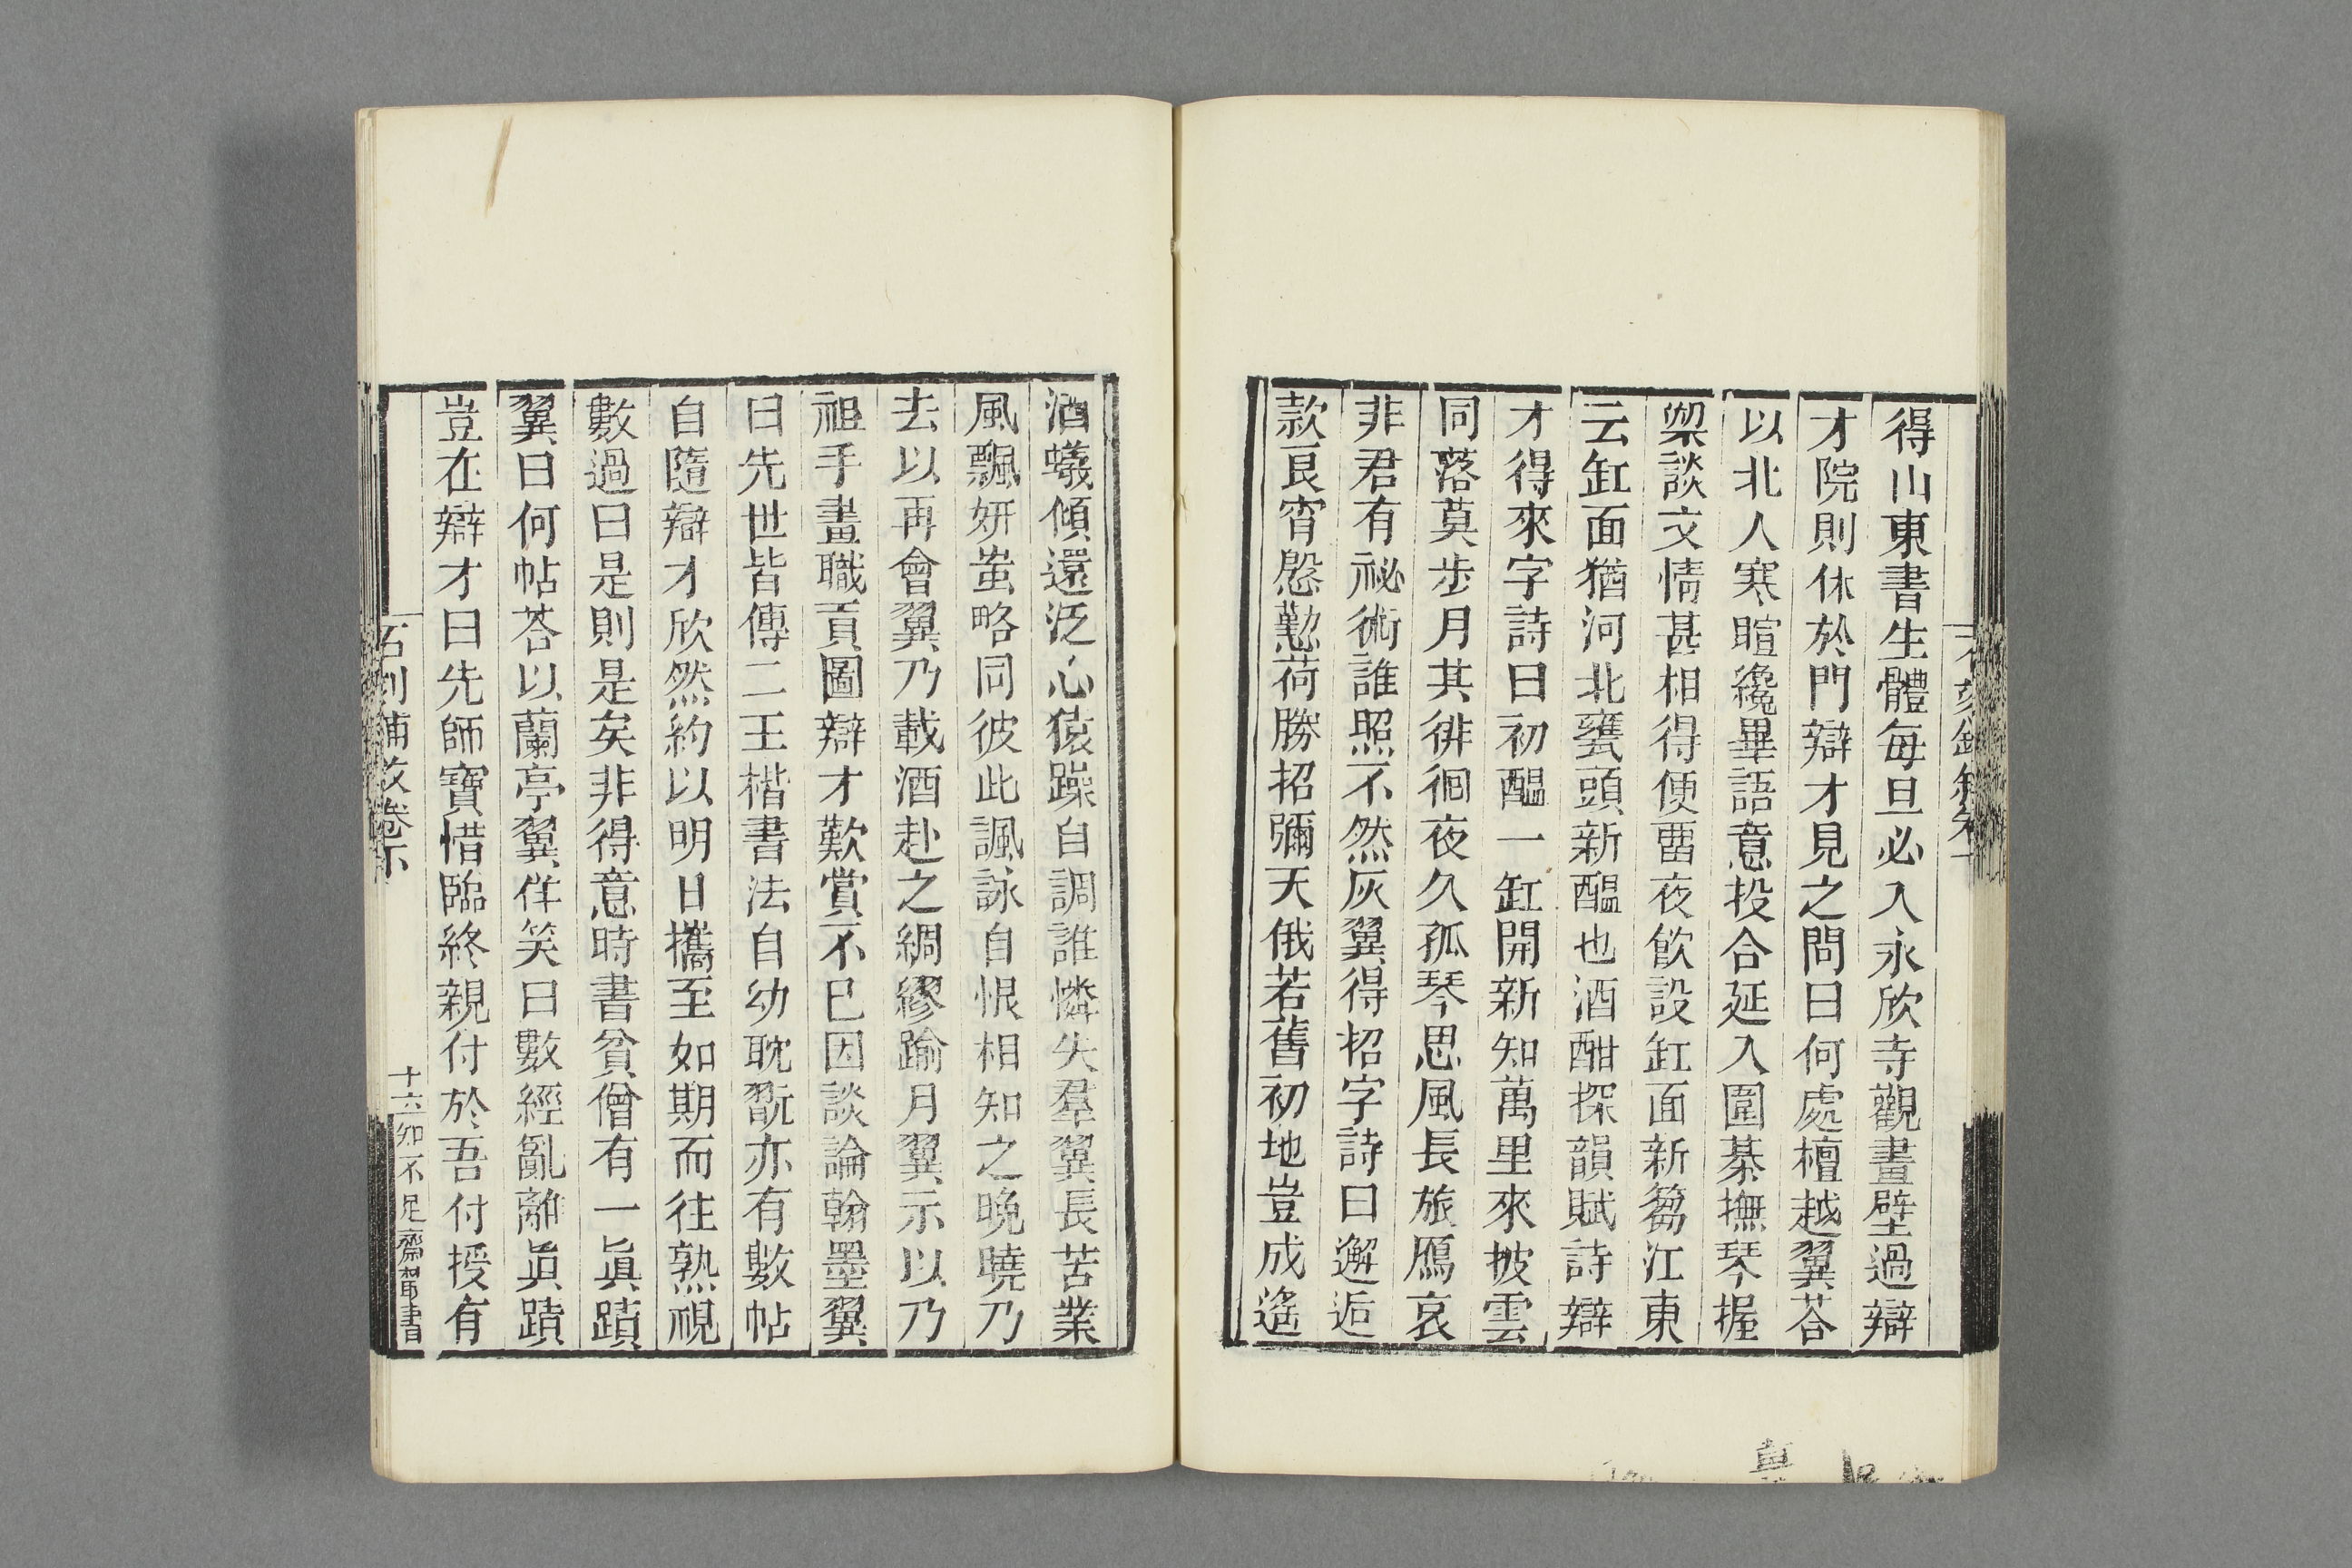 得山東書生體每旦必入永欣寺觀畫壁過辯
才院則休於門辯才見之問曰何處檀越翼荅
以北人寒暄纔畢語意投合延入圍棊撫琴握
槊談文情甚相得便畱夜飮設缸面新蒭江東
云缸面猶河北甕頭新醞也酒酣探韻賦詩辯
才得來字詩曰初醞一缸開新知萬里來披雲
同落莫步月其徘徊夜久孤琴思風長旅鴈哀
非君有祕術誰照不然灰翼得招字詩曰邂逅
款良宵慇懃荷勝招彌天俄若舊初地豈成遙
酒蟻傾還泛心猿躁自調誰憐失羣翼長苦業
風飄妍蚩略同彼此諷詠自恨相知之晚曉乃
去以再會翼乃載酒赴之綢繆踰月翼示以乃
祖手畫職貢圖辯才歎賞不已因談論翰墨翼
曰先世皆傳二王楷書法自幼耽翫亦有數帖
自隨辯才欣然約以明日攜至如期而往熟視
數過曰是則是矣非得意時書貧僧有一眞蹟
翼曰何帖荅以蘭亭翼佯笑曰數經亂離眞蹟
豈在辯才曰先師寶惜臨終親付於吾付授有
石刻鋪敘卷下
十六
知不足齋叢書